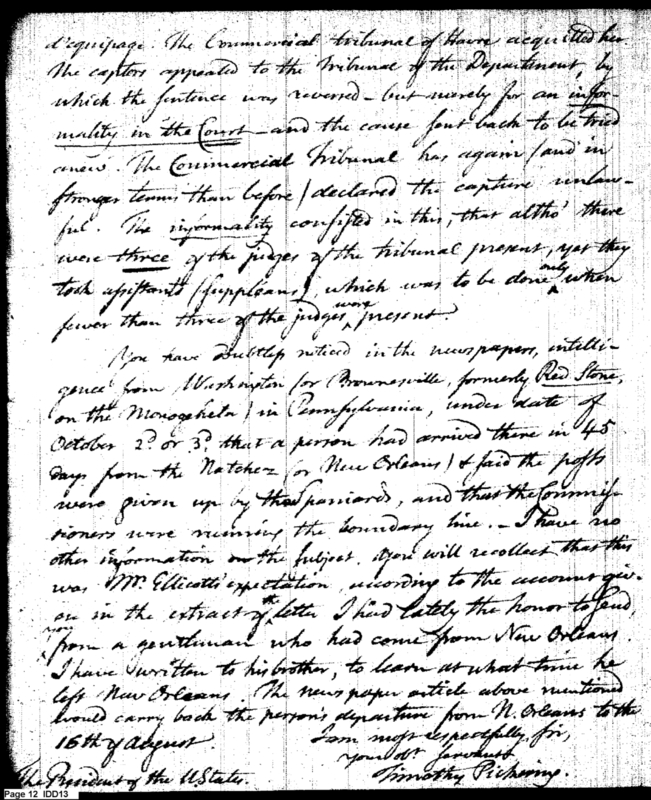 d'equipage. The Commercial tribunal of Havre acquitted her.
The captors appealed to the Tribunal of the Department, by
which the sentence was reversed – but merely for an infor-
mality in the Court – and the cause sent back to be tried
anew. The Commercial Tribunal has again (and in
stronger terms than before) declared the capture unlaw-
ful. The informality consisted in this, that altho' there
were three of the judges of the tribunal present, yet they
took assistants (suppléans), which was to be done only when
fewer than three of the judges were present.
You have doubtless noticed in the newspapers, intelli-
gence from Washington (or Brownesville, formerly Red Stone,
on the Monogehela) in Pennsylvania, under date of
October 2d. or 3d. that a person had arrived there in 45
days from the Natchez (or New Orleans) & said the posts
were given up by the Spaniards, and that the Commis-
sioners were running the boundary line. – I have no
other information on the subject. You will recollect that this
was Mr. Ellicott's expectation, according to the account giv-
en in the extract of the letter I had lately the honor to send
you from a gentleman who had come from New Orleans.
I have written to his brother, to learn at what time he
left New Orleans. The newspaper article above mentioned
would carry back the person's departure from N. Orleans to the
16th of August.
I am most respectfully, sir,
your obt. servant
Timothy Pickering.
The President of the U States.
Page 12 IDD13